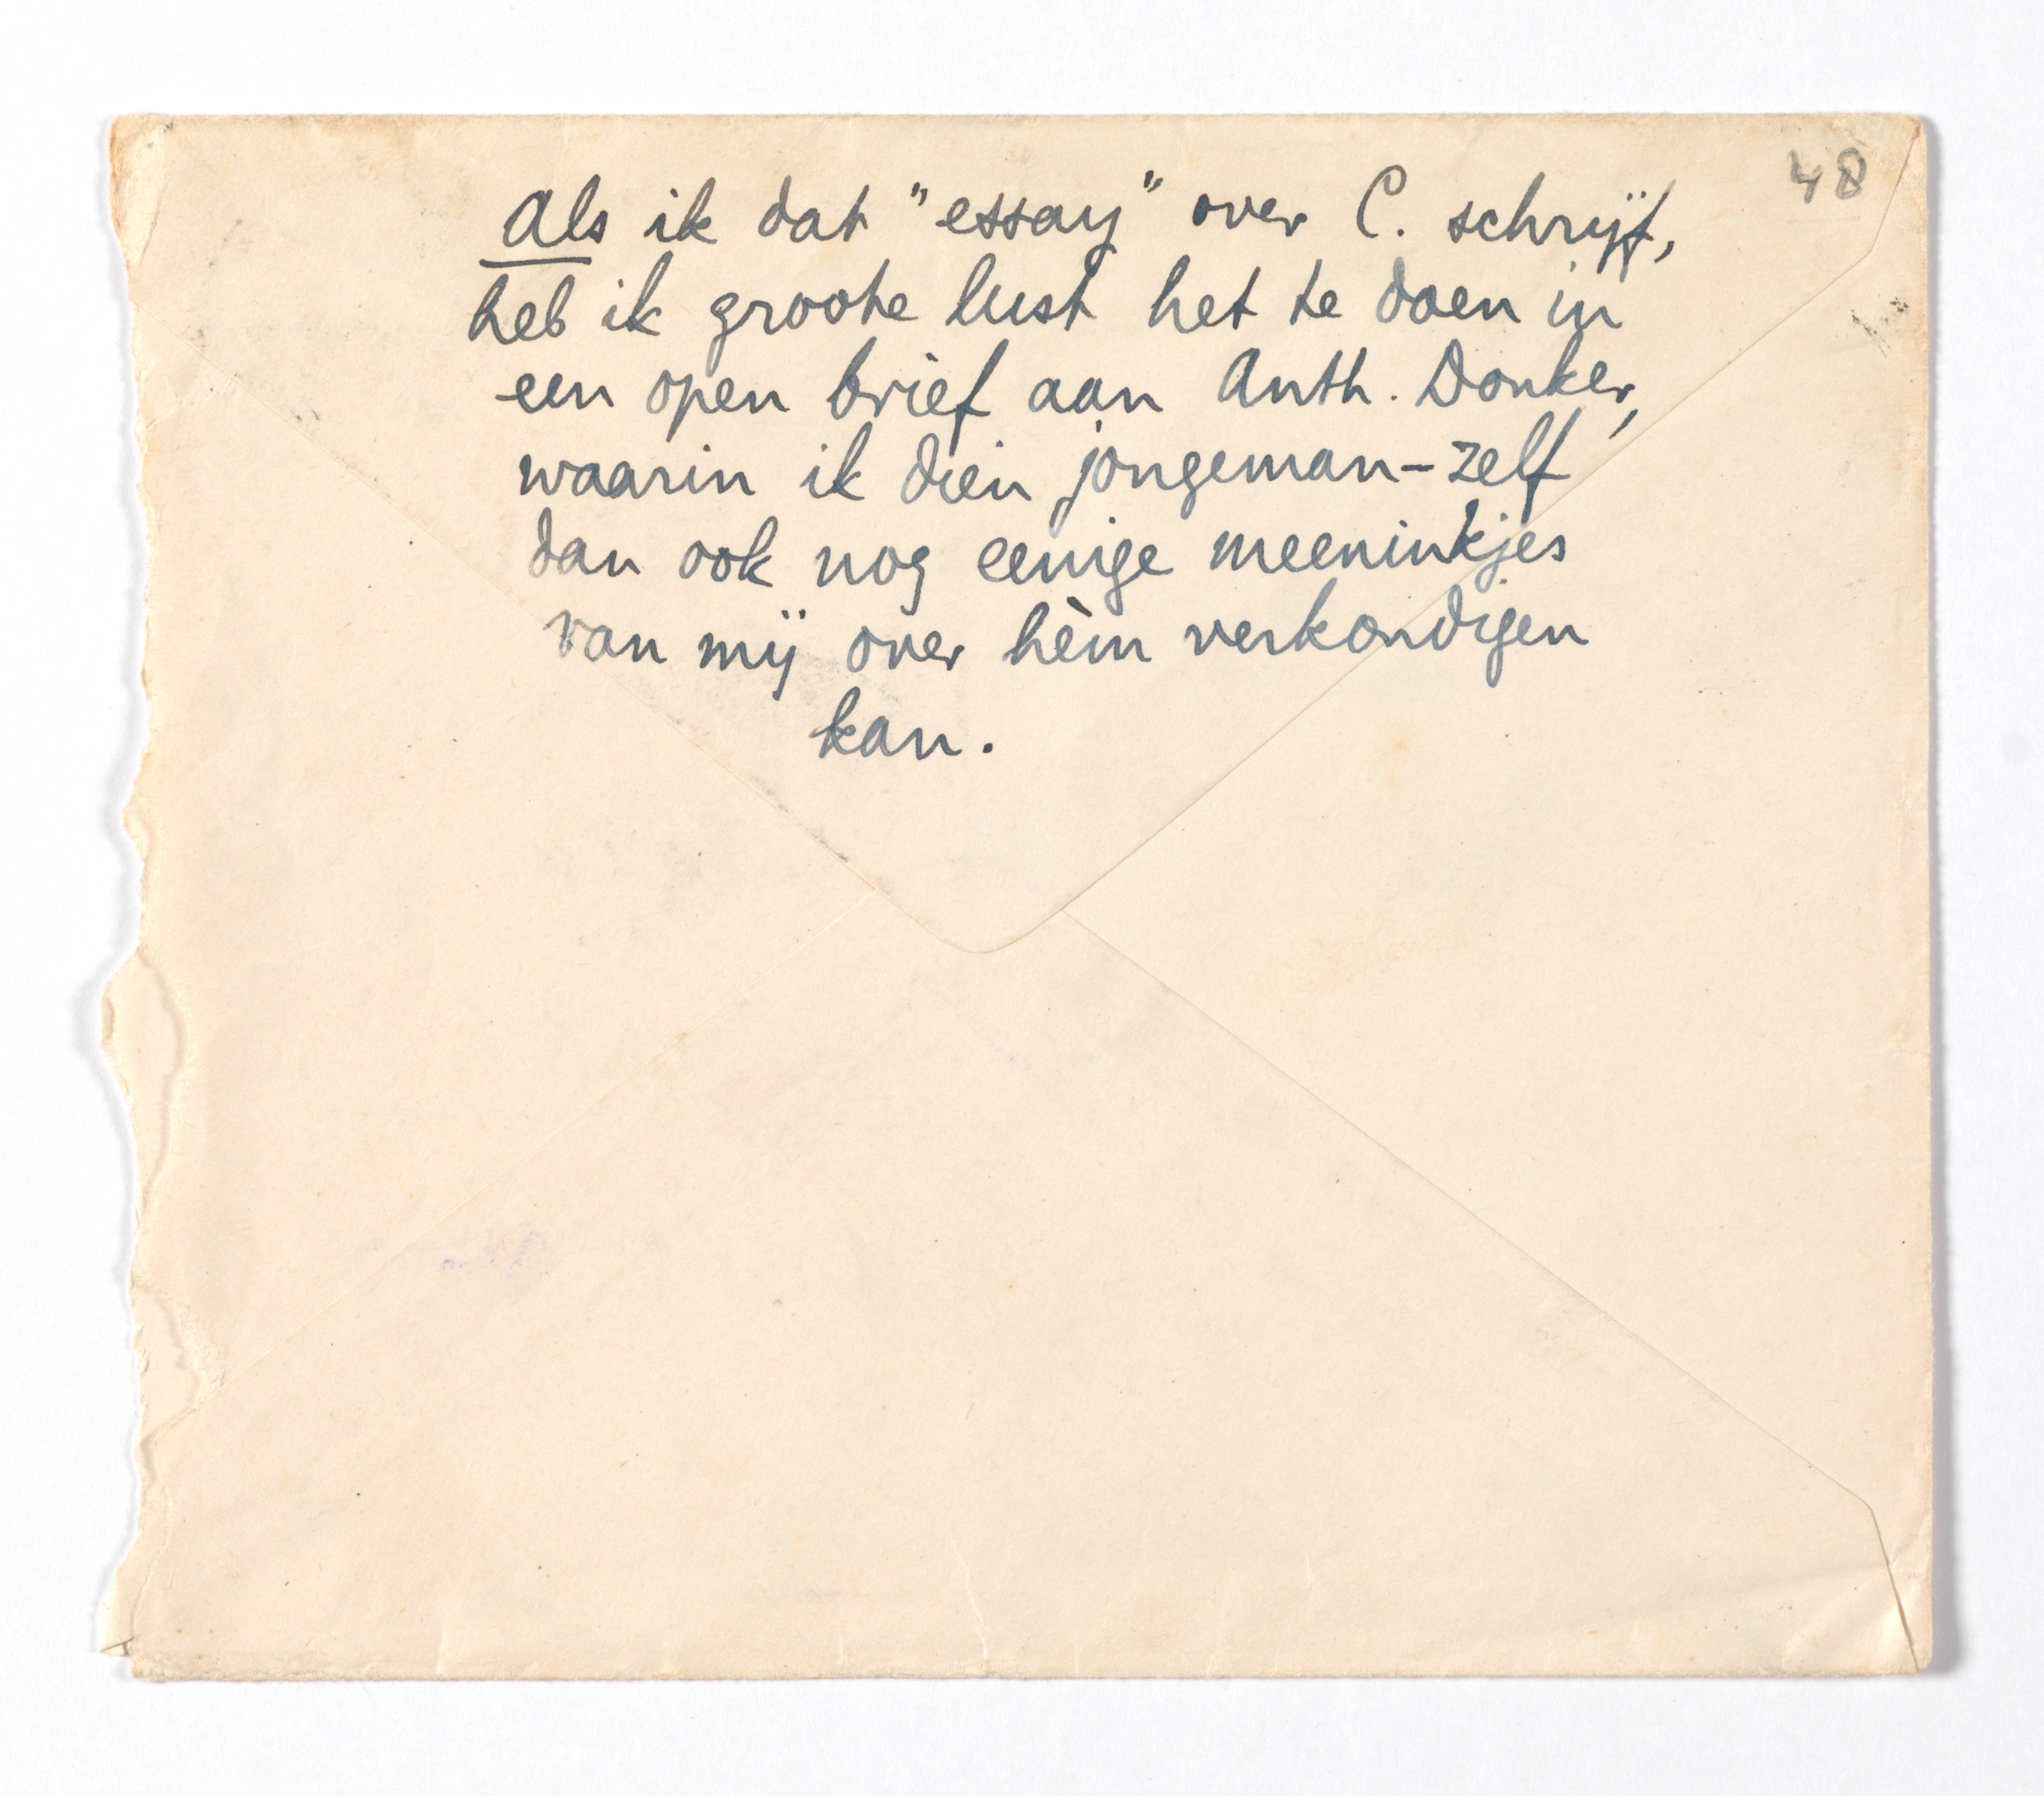 48
Als ik dat "essay" over C. schrijf,
heb ik groote lust het te doen in
een open brief aan Anth. Donker,
waarin ik dien jongeman-zelf
dan ook nog eenige meeninkjes
van mij over hèm verkondigen
kan.